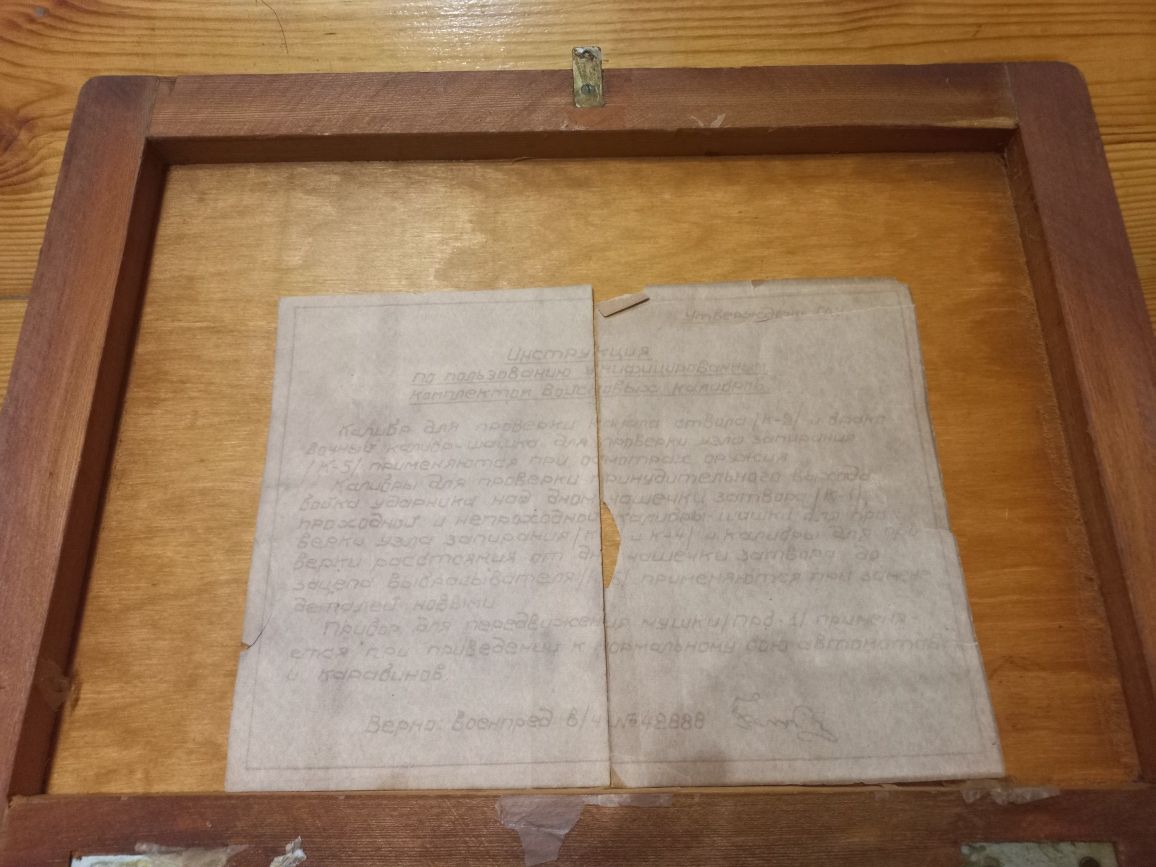 Утверждены ГАУ
Инструкция
по пользованию унифицированным
комплектом войсковых калибров
Калибр для проверки канала ствола /К-2/ и брако-
вочный калибр-шашка для проверки узла запирания
/К-5/ применяются при осмотрах оружия
Калибры для проверки принудительного выхода
бойка ударника над дном чашечки затвора /К-1/,
проходной и непроходной калибры-шашки для про-
верки узла запирания /К- и К-4/ и калибры для про
верки расстояния от дна чашечки затвора до
зацепа выбрасывателя применяются при замене
деталей новыми
Прибор для передвижения мушки /Прб-1/ применя-
ется при приведении к нормальному бою автоматов
и карабинов.
Верно: военпред в/ч №42888